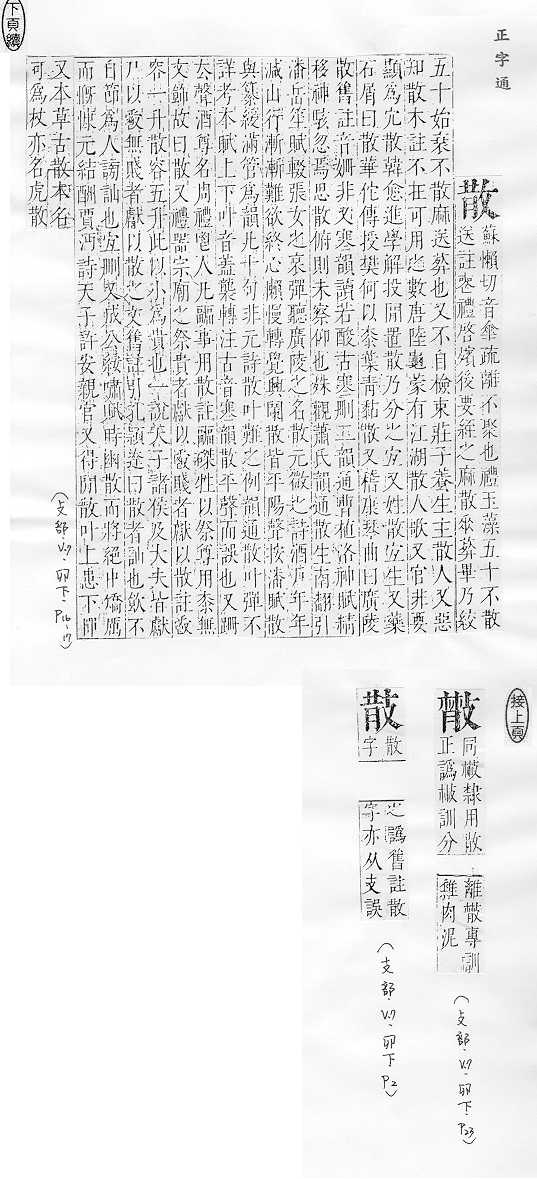 正字通
散
蘇懶切音傘疏離不聚也禮玉藻五十不散
送註喪禮啓殯後要絰之麻散垂葬畢乃絞
五十始衰不散麻送葬也又不自檢束莊子養生主散人又惡
知散木註不在可用之數唐陸龜蒙有江湖散人歌又官非要
顯爲宂散韓愈進學解投閒置散乃分之宜又姓散宜生又藥
石屑曰散華佗傳授樊何以桼葉靑黏散又稽康琴曲曰廣陵
散舊註音姍非又寒韻讀若酸古寒刪玉韻通曹植洛神賦精
移神駭忽焉思散俯則未察仰也殊觀蕭氏韻通散生南翻引
潘岳笙賦輟張女之哀彈聽廣陵之名散元微之詩酒戸年年
減山行漸漸難欲終心懶慢轉覺興闌散皆平陽聲按潘賦散
與纂緩滿管爲韻此十句非元詩散叶難之例韻通散叶彈不
詳考本賦上下叶音蓋襲轉注古音寒韻散平聲而誤也又跚
去聲酒尊名周禮鬯人凡疈事用散註疈磔牲以祭尊用桼無
文飾故曰散又禮器宗廟之祭貴者獻以爵賤者獻以散註爵
容一升散容五升此以小爲貴也一說天子諸侯及大夫皆獻
尸以爵無賤者獻以散之文舊註引孔穎逹曰散者訕也飮不
自節爲人謗訕也宜刪又成公綏嘯賦時幽散而將絕中矯厲
而慨慷元結酬賈沔詩天子許安親官又得閒散叶上患下
又本草古散木名
可爲杖亦名虎散
(攴部·V.7·卯下·P16-17)
下頁續
接上頁
同㪔隸用散
正譌㪔訓分
離𢿱專訓
雜肉泥
(攴部·V.7·卯下·P23)
散
散
字
之譌舊註散
字亦从支誤
(支部·V.7·卯下·P2)